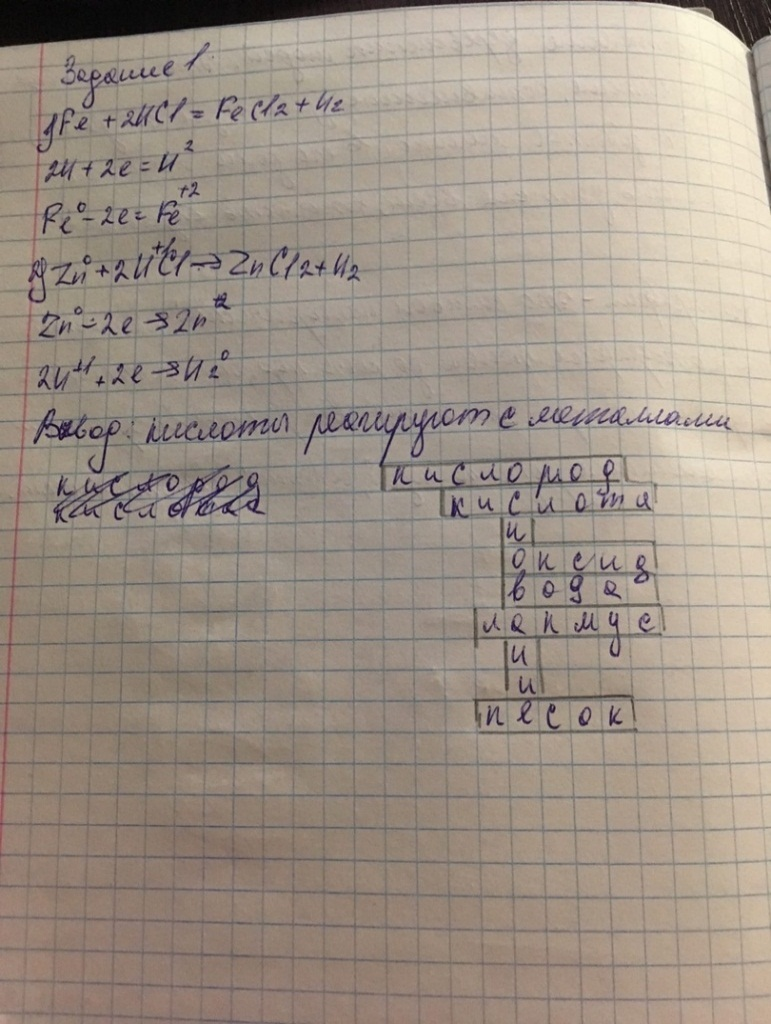 Задание 1:
1) Fe + 2HCl = FeCl2 + H2
2H + 2e = H²
Fe⁰ - 2e = Fe⁺²
2) Zn⁰ + 2H⁺¹Cl → ZnCl2 + H2
Zn⁰ - 2e → Zn⁺²
2H⁺¹ + 2e → H2⁰
Вывод: кислоты реагируют с металлами
кислород
кислород
кислота
и
оксид
вода
лакмус
и
и
песок